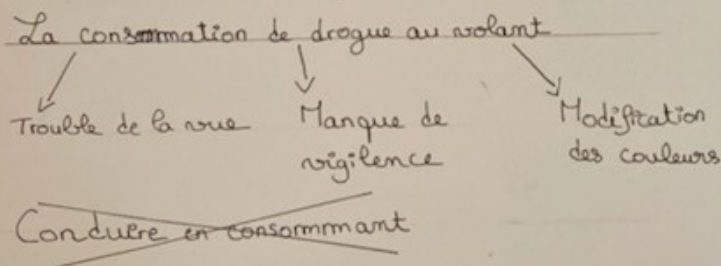 La consommation de drogue au volant
Trouble de la vue
Manque de
vigilence
Modification
des couleurs
Conduire en consommant